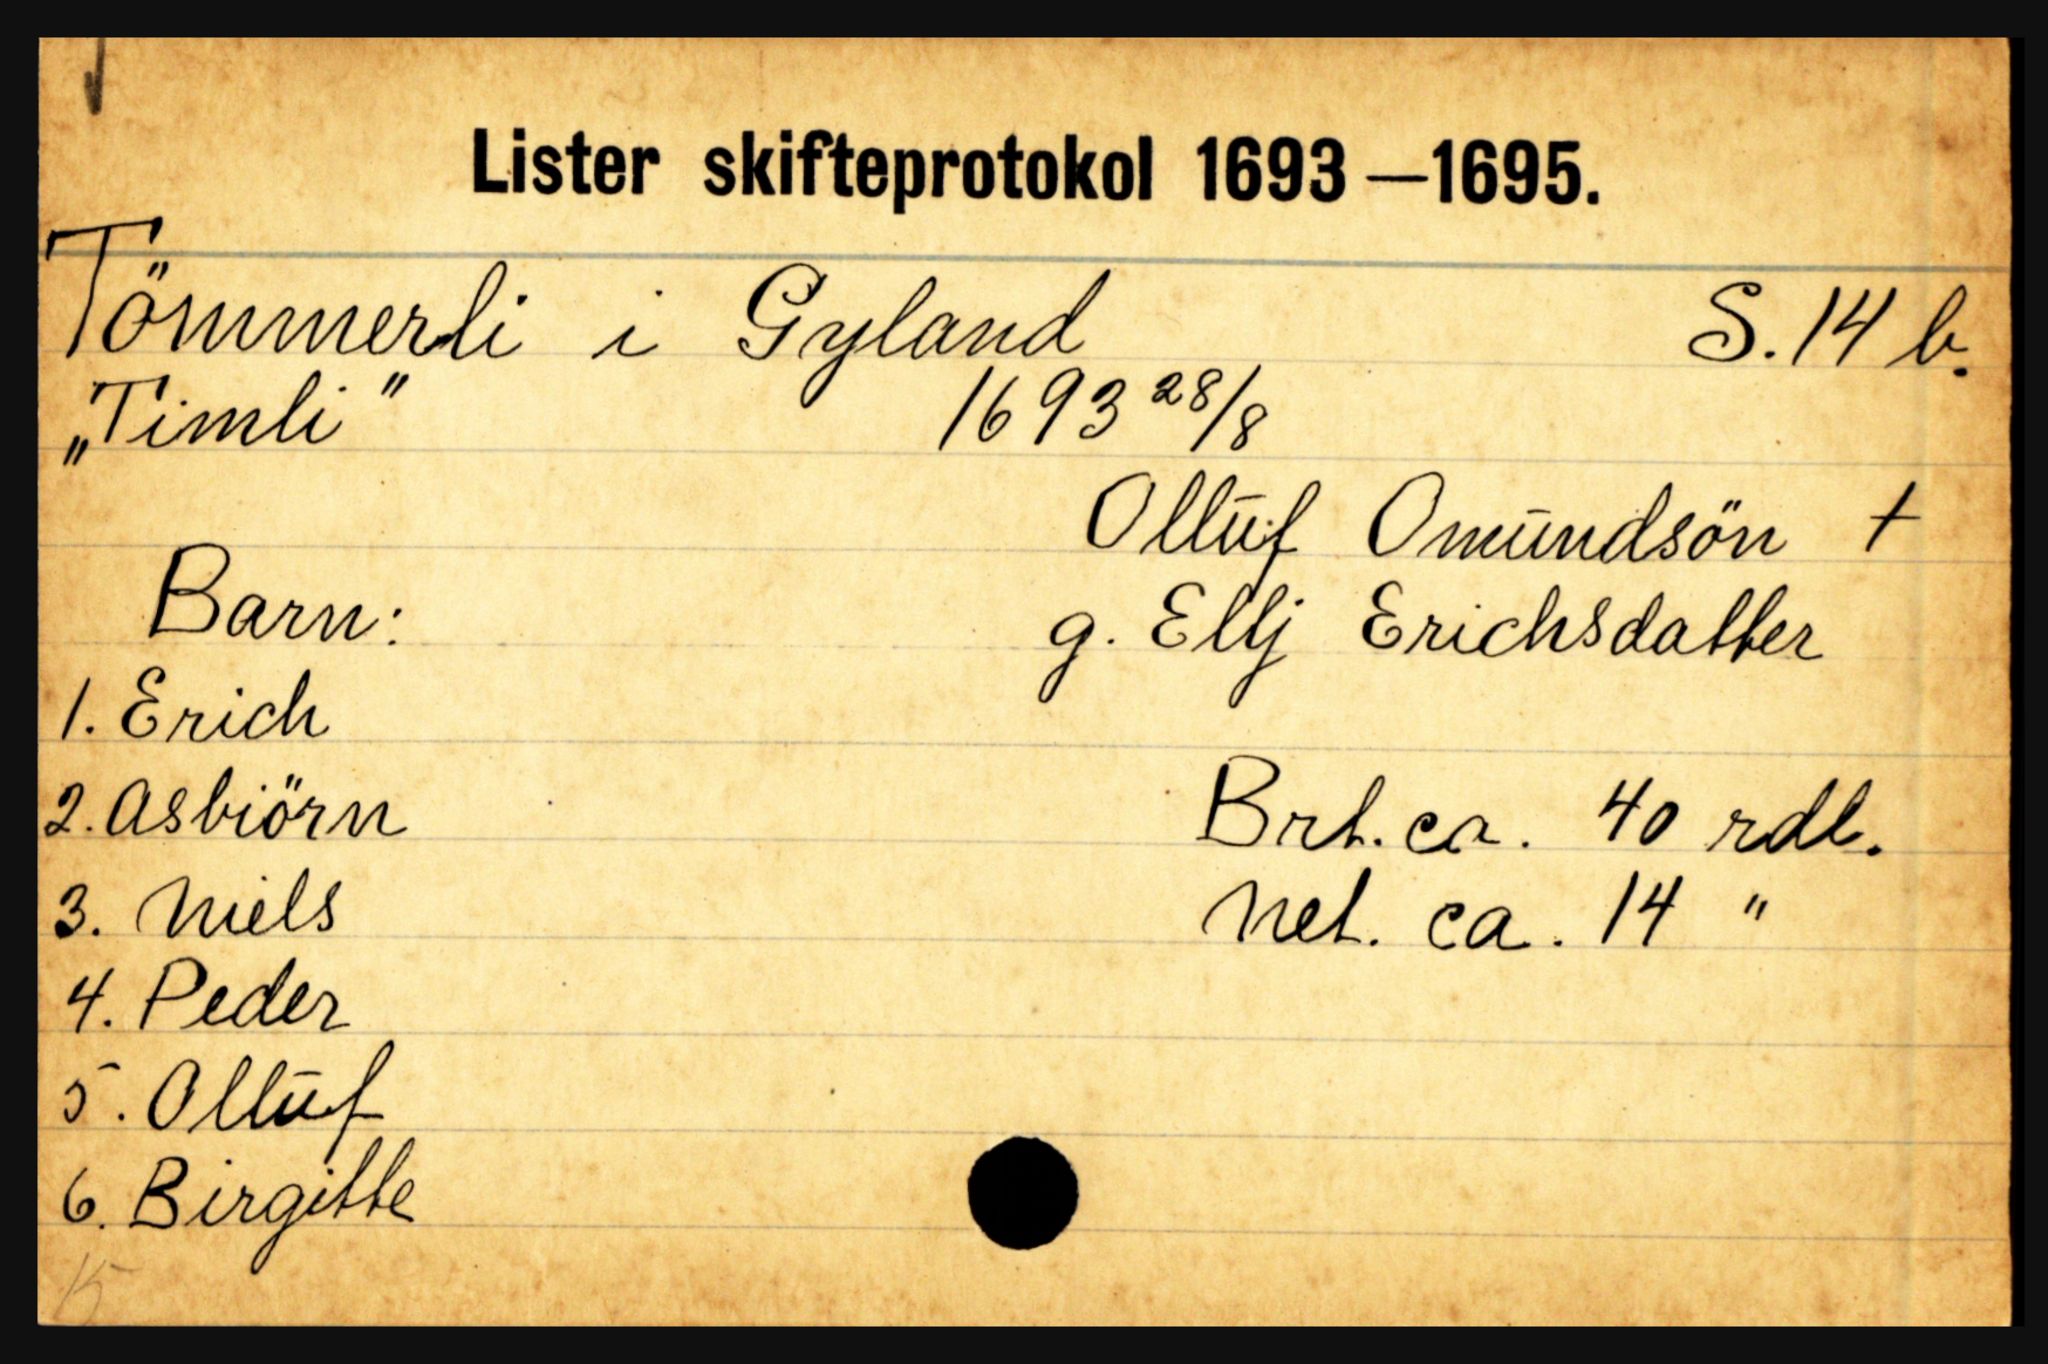 Lister skifteprotokol 1693—1695.
Tömmerli i Gyland S. 14 b.
„Timli" 1693 28/8
Olluf Omundsön +
g. Ellj Erichsdatter
Barn:
1. Erich
2. Asbiörn
3. Niels
4. Peder
5. Olluf
6. Birgitte
Brt. ca. 40 rdl.
Net. ca. 14 "
15